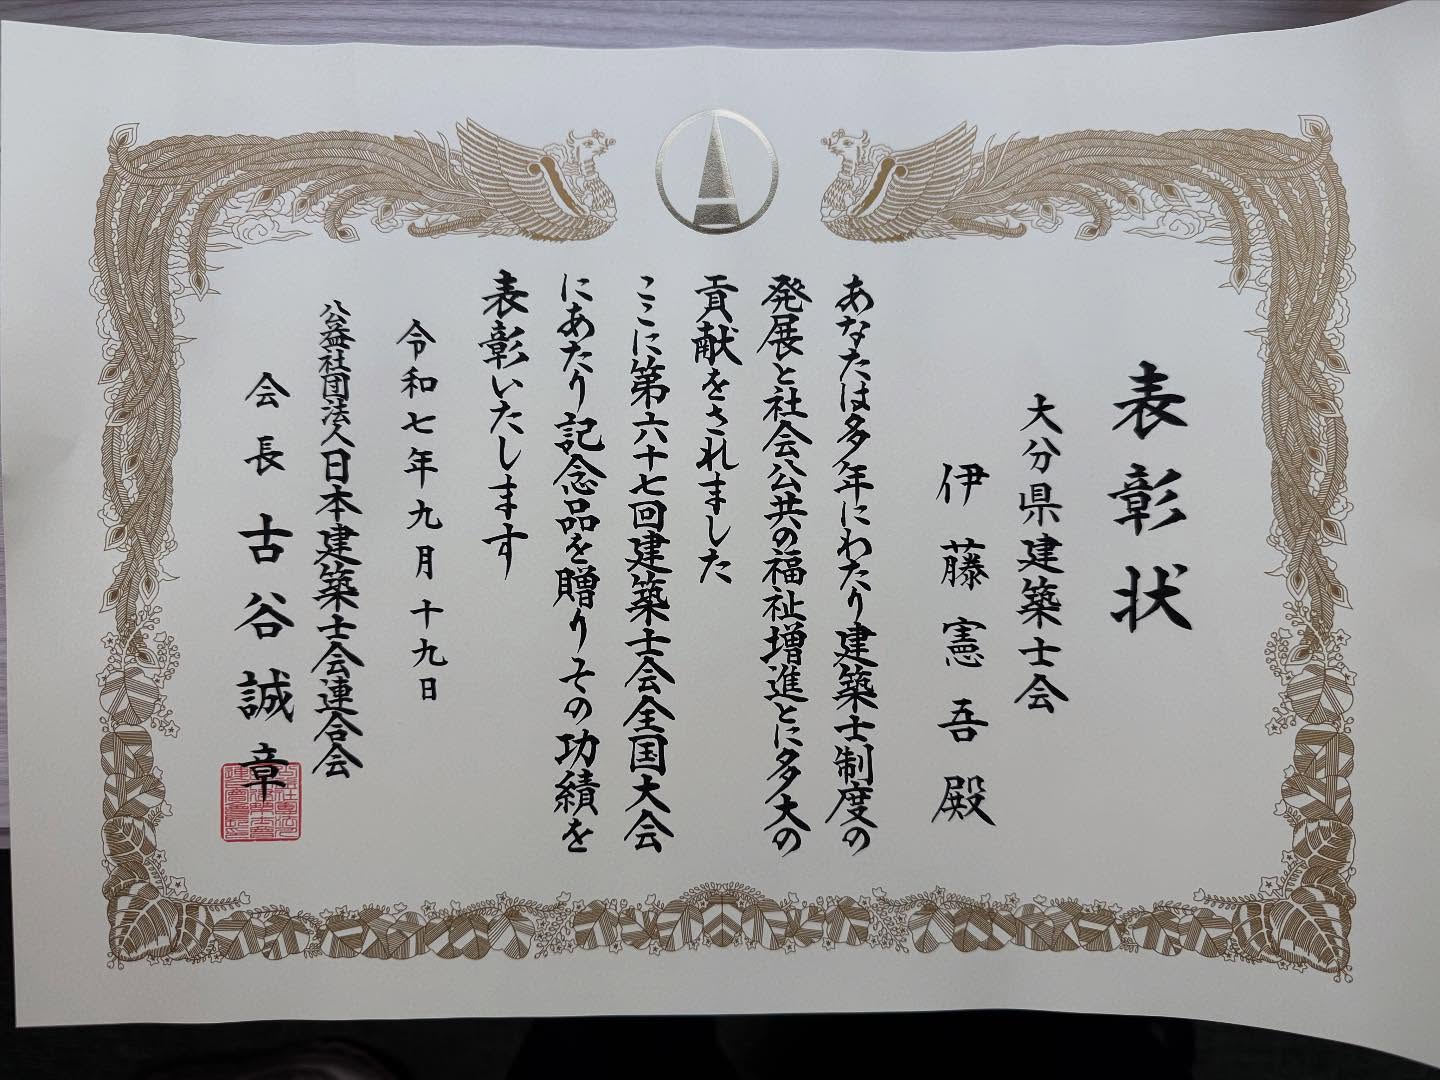 表彰状
大分県建築士会
伊藤憲吾殿
あなたは多年にわたり建築士制度の
発展と社会公共の福祉増進とに多大の
貢献をされました
ここに第六十七回建築士会全国大会
にあたり記念品を贈りその功績を
表彰いたします
令和七年九月十九日
公益社団法人日本建築士会連合会
会長古谷誠章